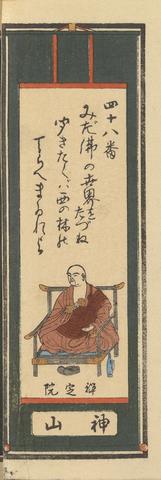 四十八番
みだ佛の世界を
たづね
ゆきたくバ西の林の
てらへまゐれよ
禅定院
神山